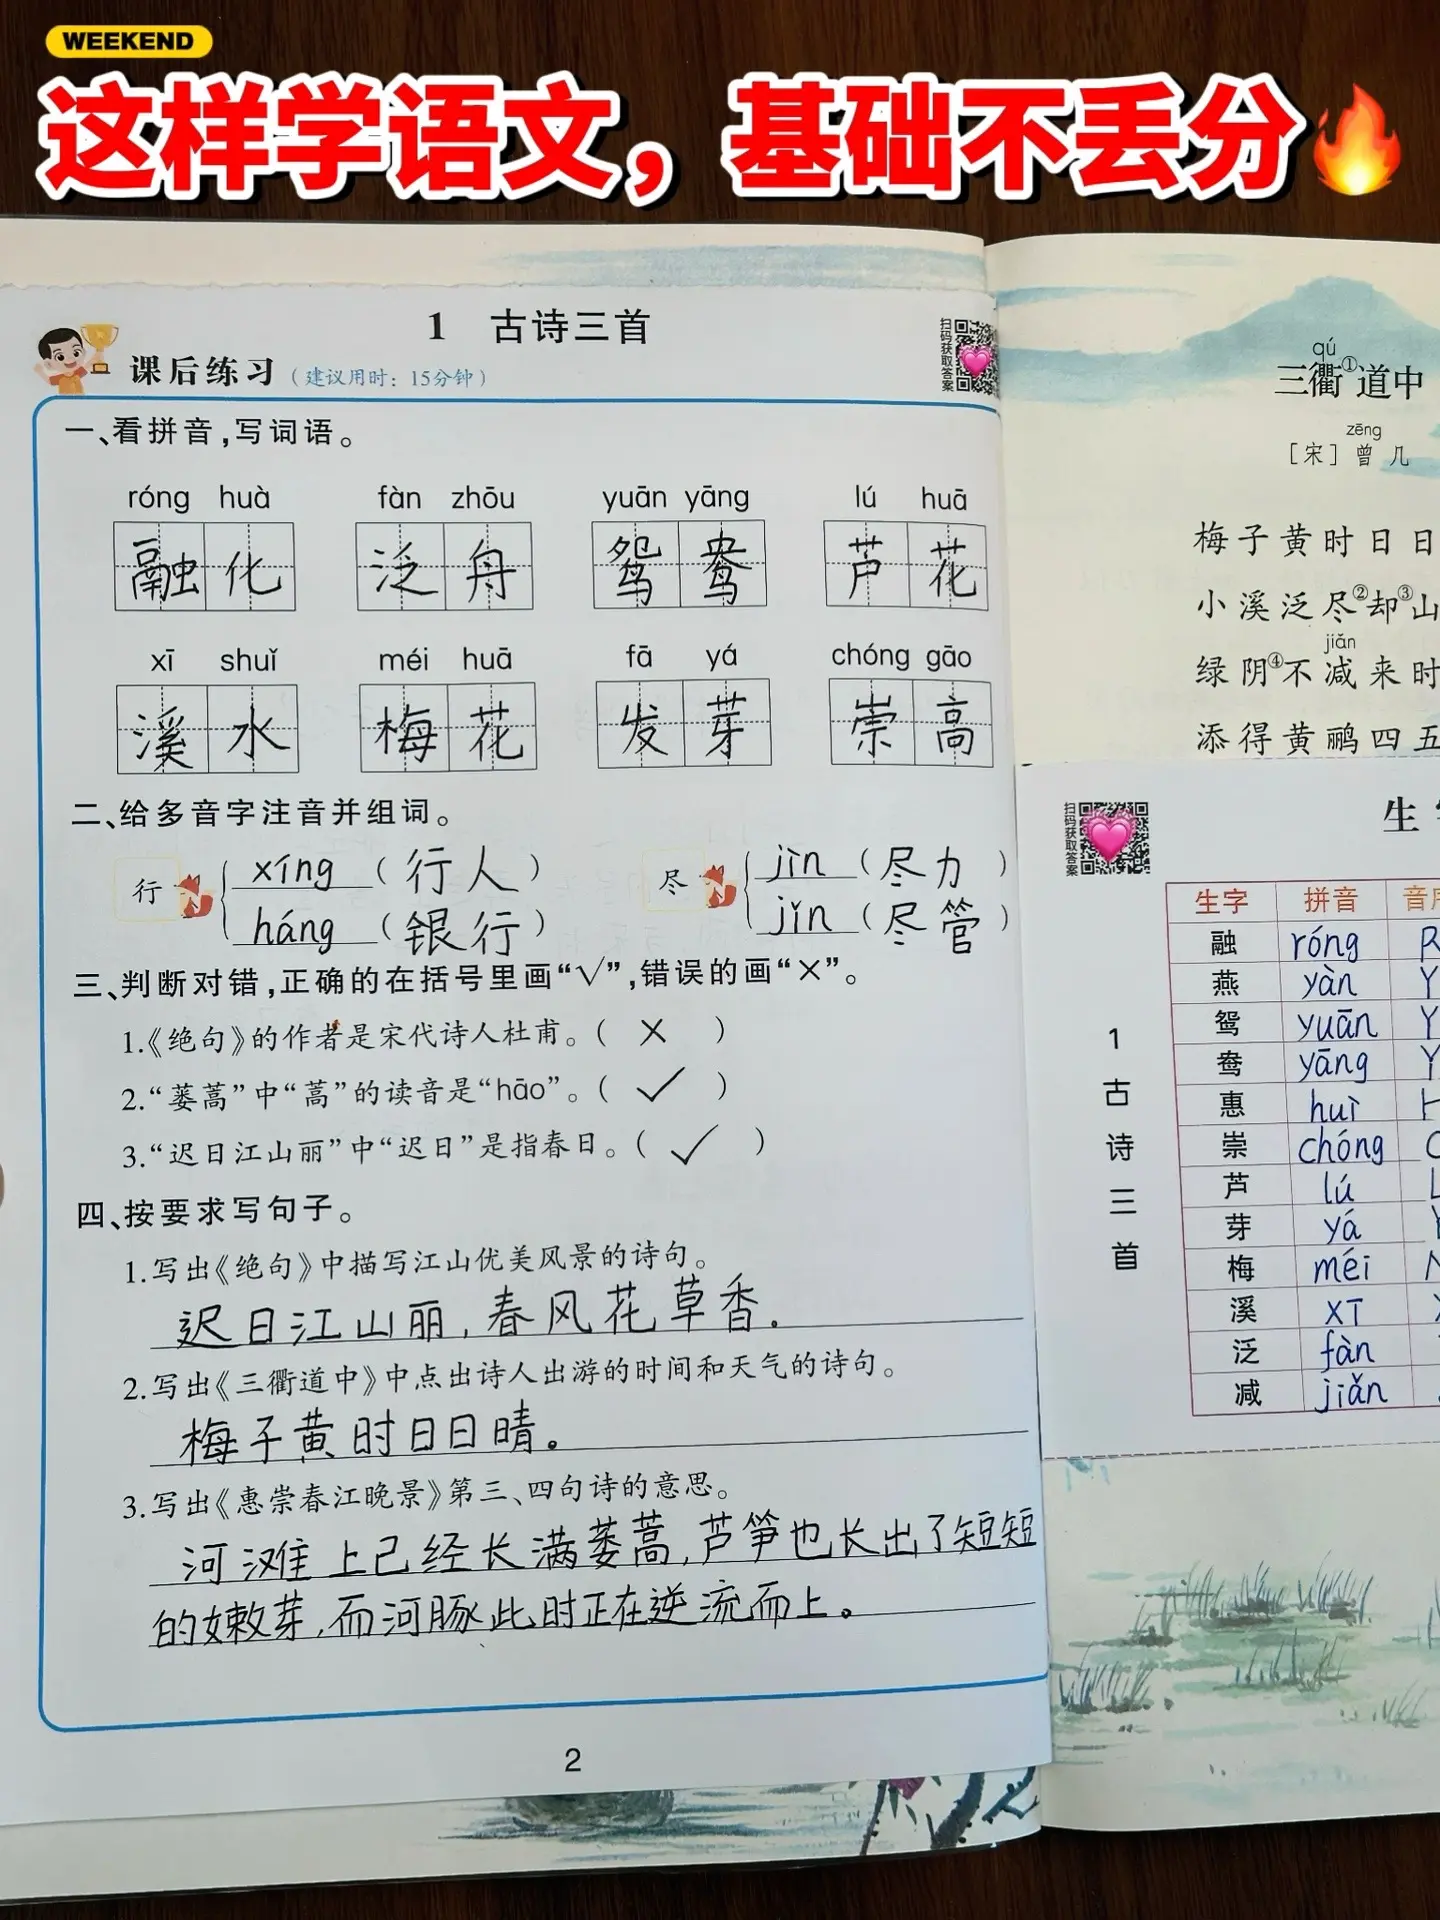 WEEKEND
这样学语文，基础不丢分
1 古诗三首
课后练习（建议用时：15分钟）
扫码获取答案
一、看拼音，写词语。
róng huà fàn zhōu yuān yāng lú huā
融化 泛舟 鸳鸯 芦花
xī shuǐ méi huā fā yá chóng gāo
溪水 梅花 发芽 崇高
二、给多音字注音并组词。
行 xíng（行人） 尽 jìn（尽力）
háng（银行） jǐn（尽管）
三、判断对错，正确的在括号里画“√”，错误的画“×”。
1.《绝句》的作者是宋代诗人杜甫。（ × ）
2.“蒌蒿”中“蒿”的读音是“hāo”。（ ✓ ）
3.“迟日江山丽”中“迟日”是指春日。（ ✓ ）
四、按要求写句子。
1.写出《绝句》中描写江山优美风景的诗句。
迟日江山丽，春风花草香。
2.写出《三衢道中》中点出诗人出游的时间和天气的诗句。
梅子黄时日日晴。
3.写出《惠崇春江晚景》第三、四句诗的意思。
河滩上已经长满蒌蒿，芦笋也长出了短短
的嫩芽，而河豚此时正在逆流而上。
2
qú
三衢①道中
zēng
［宋］曾几
梅子黄时日日
小溪泛尽②却③山
jiǎn
绿阴④不减来时
添得黄鹂四五
扫码获取答案
生
1古诗三首
生字 拼音 音
融 róng R
燕 yàn Y
鸳 yuān Y
鸯 yāng Y
惠 huì H
崇 chóng C
芦 lú L
芽 yá Y
梅 méi
溪 xī X
泛 fàn
减 jiǎn